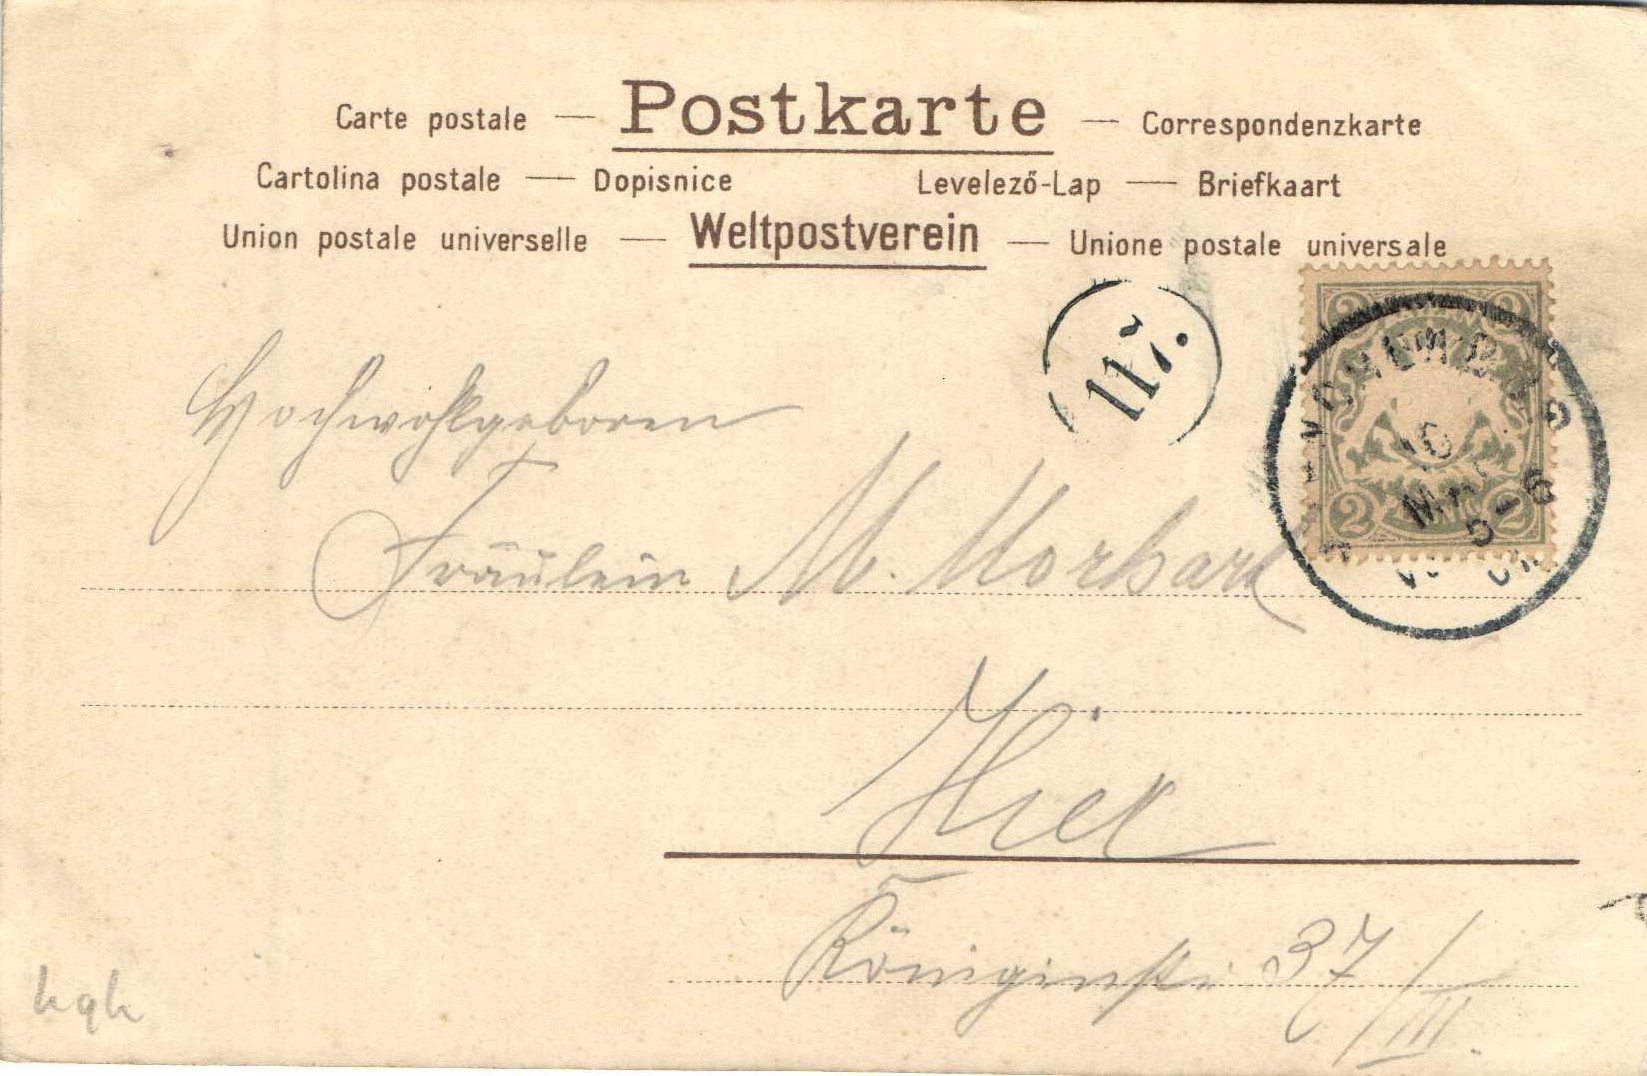 Carte postale — Postkarte — Correspondenzkarte
Cartolina postale — Dopisnice Levelező-Lap — Briefkaart
Union postale universelle — Weltpostverein — Unione postale universale
117.
2 2
2 2
5-6
Hochwohlgeboren
Fräulein M. Morhart
Hier
Königinstr. 37/III.